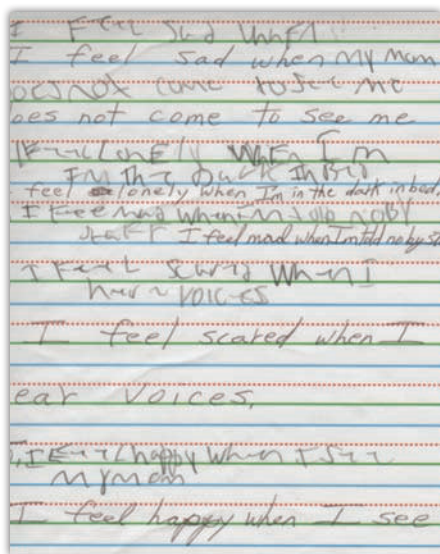 I Feel Sad When
I feel sad when my mom
Does not come to see me
oes not come to see me
I Feel Lonely When I'm
In The Dark In Bed
feel lonely when I'm in the dark in bed.
I Feel mad When I'm told no By
staff I feel mad when I'm told no by s
I Feel Scared When I
hear voices
I feel scared when I
ear voices.
I Feel happy When I See
my mom
I feel happy when I see